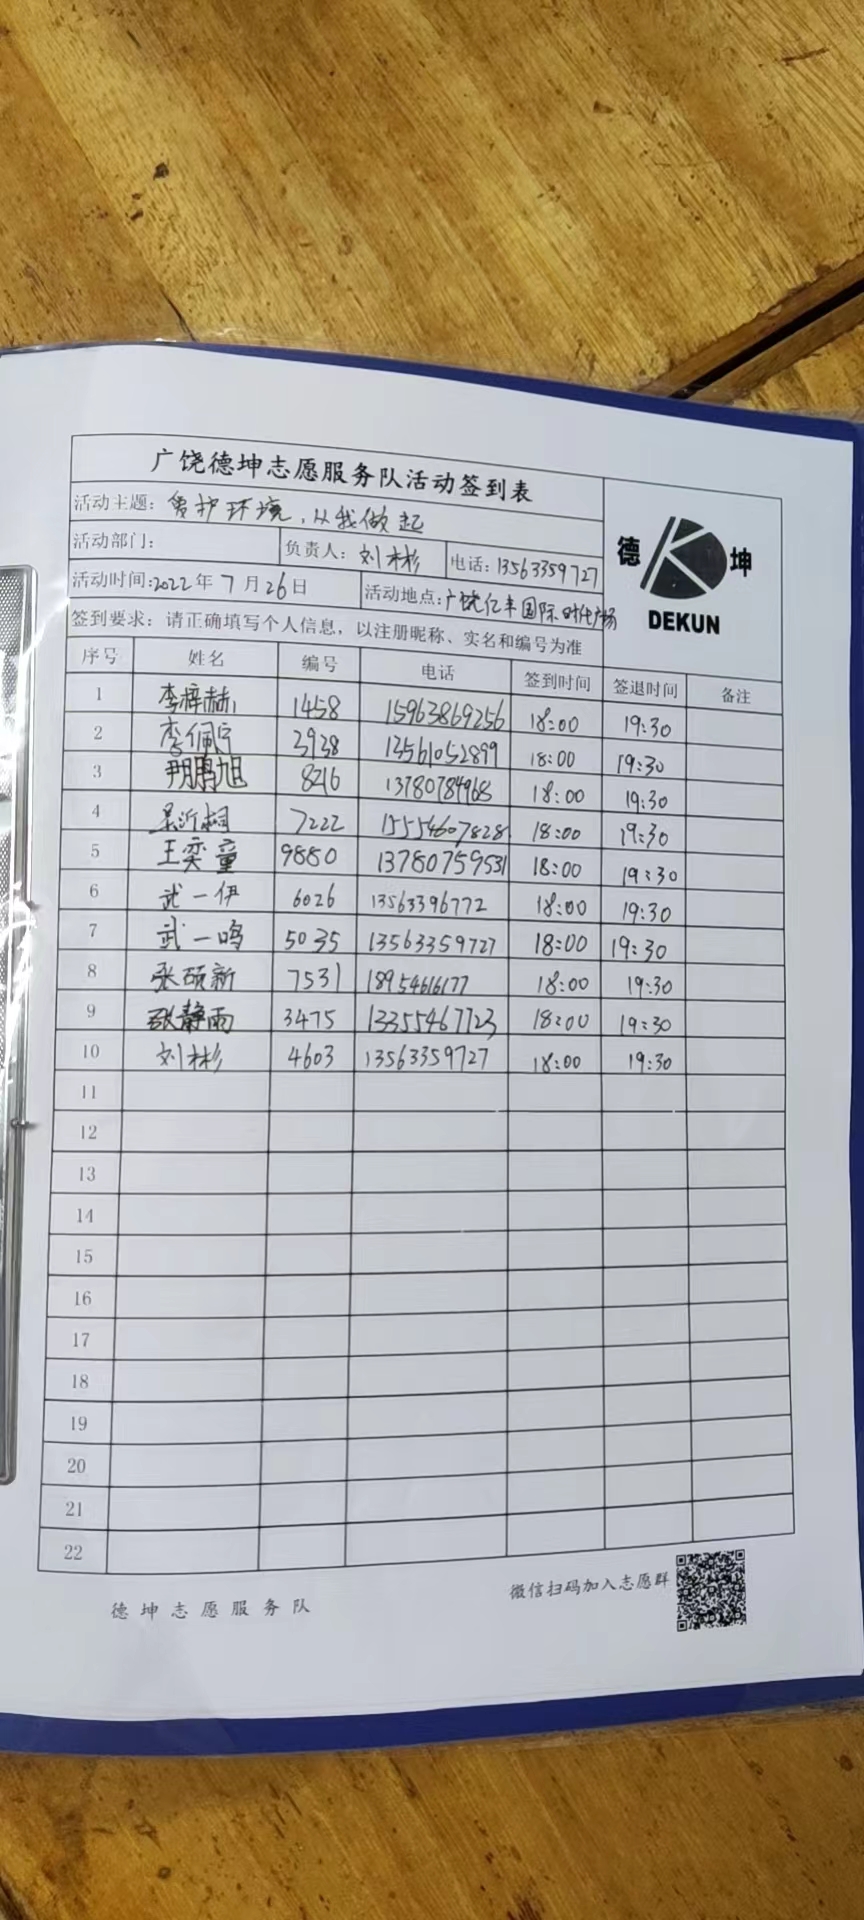 广饶德坤志愿服务队活动签到表
活动主题：爱护环境，从我做起
活动部门： 负责人：刘彬彬 电话：13563359727
德坤
DEKUN
活动时间：2022年7月26日 活动地点：广饶亿丰国际时代广场
签到要求：请正确填写个人信息，以注册昵称、实名和编号为准
序号 姓名 编号 电话 签到时间 签退时间 备注
1 李梓赫 1458 15963869256 18:00 19:30
2 李佩宁 3938 13561052899 18:00 19:30
3 尹鹏旭 8216 13780784968 18:00 19:30
4 吴沂桐 7222 15554607828 18:00 19:30
5 王奕童 9880 13780759531 18:00 19:30
6 武一伊 6026 13563396772 18:00 19:30
7 武一鸣 5035 13563359727 18:00 19:30
8 张硕新 7531 18954616177 18:00 19:30
9 张静雨 3475 13355467723 18:00 19:30
10 刘彬彬 4603 13563359727 18:00 19:30
11
12
13
14
15
16
17
18
19
20
21
22
德坤志愿服务队 微信扫码加入志愿群